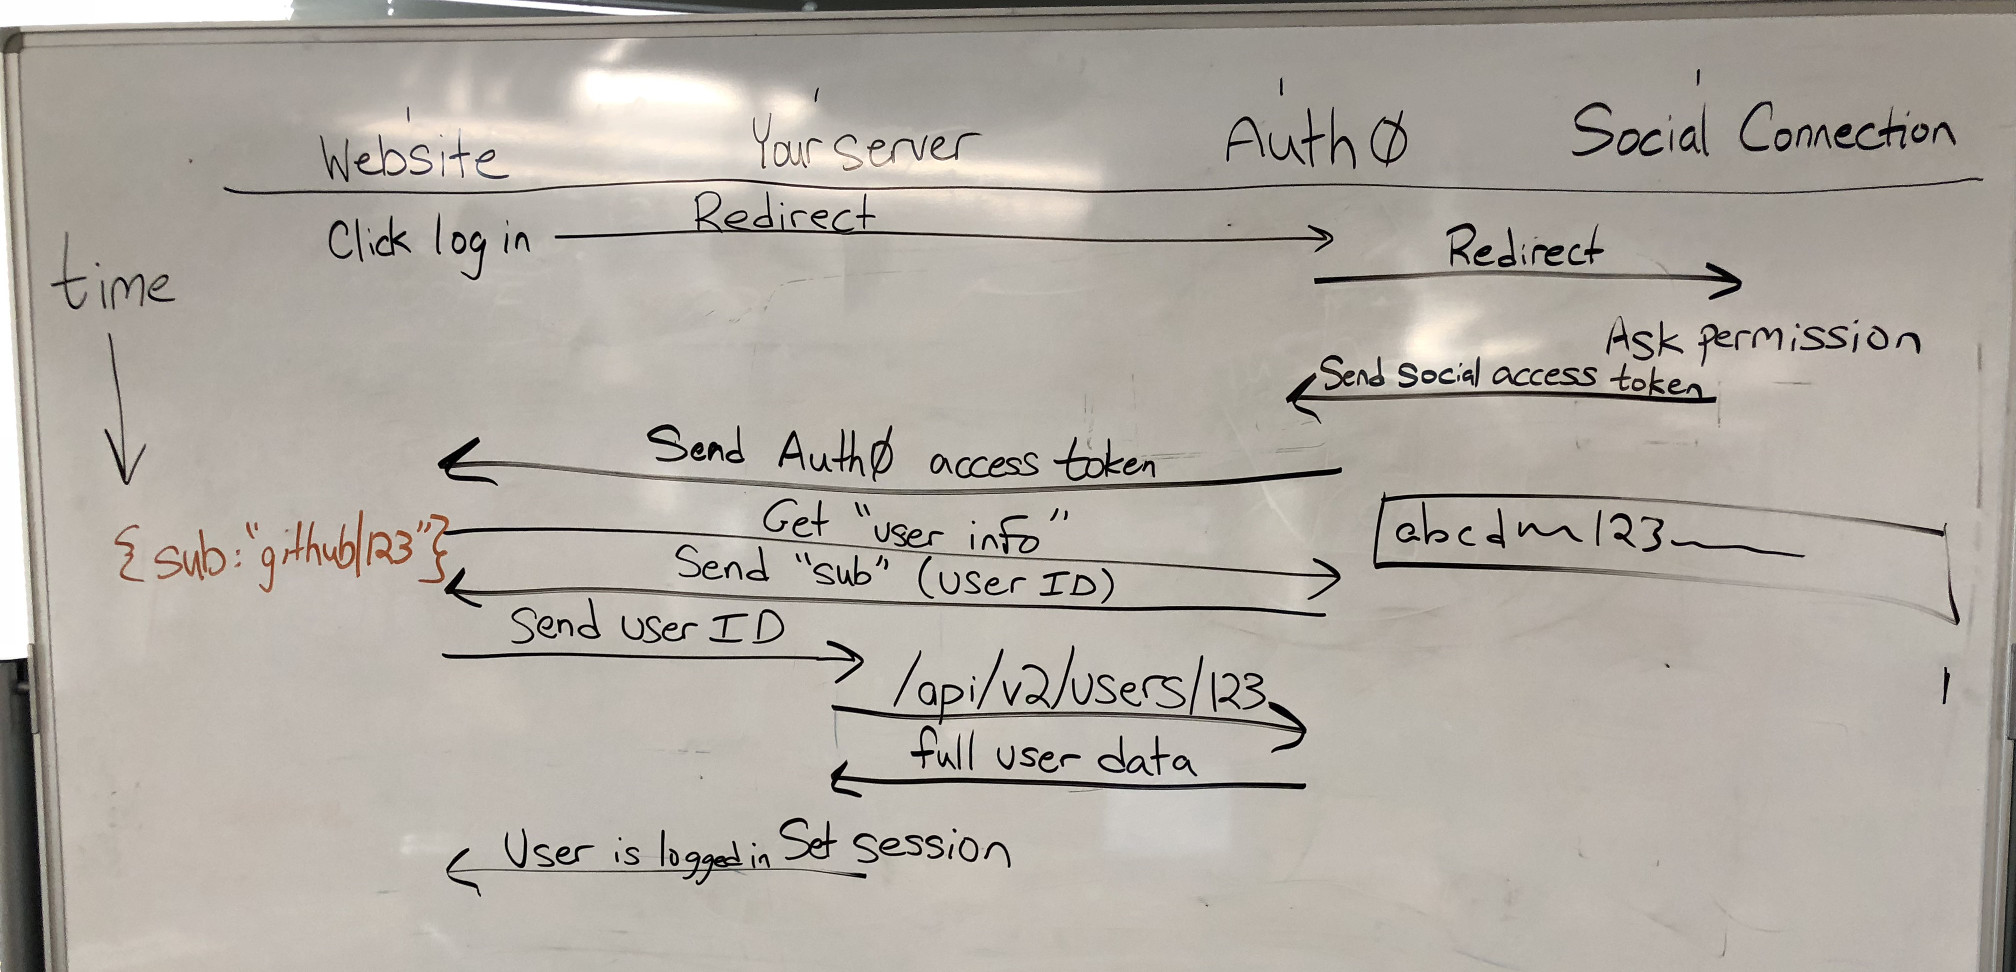 Website Your server Auth0 Social Connection
Click log in Redirect
Redirect
time
Ask permission
Send social access token
Send Auth0 access token
{sub:"github|123"}
Get "user info"
abcdm123
Send "sub" (user ID)
Send user ID
/api/v2/users/123
full user data
User is logged in Set session